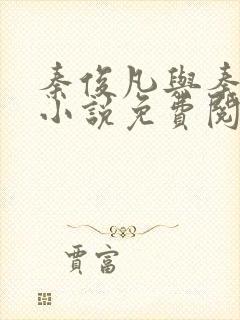 秦俊凡與秦
小說免費閱
賈富